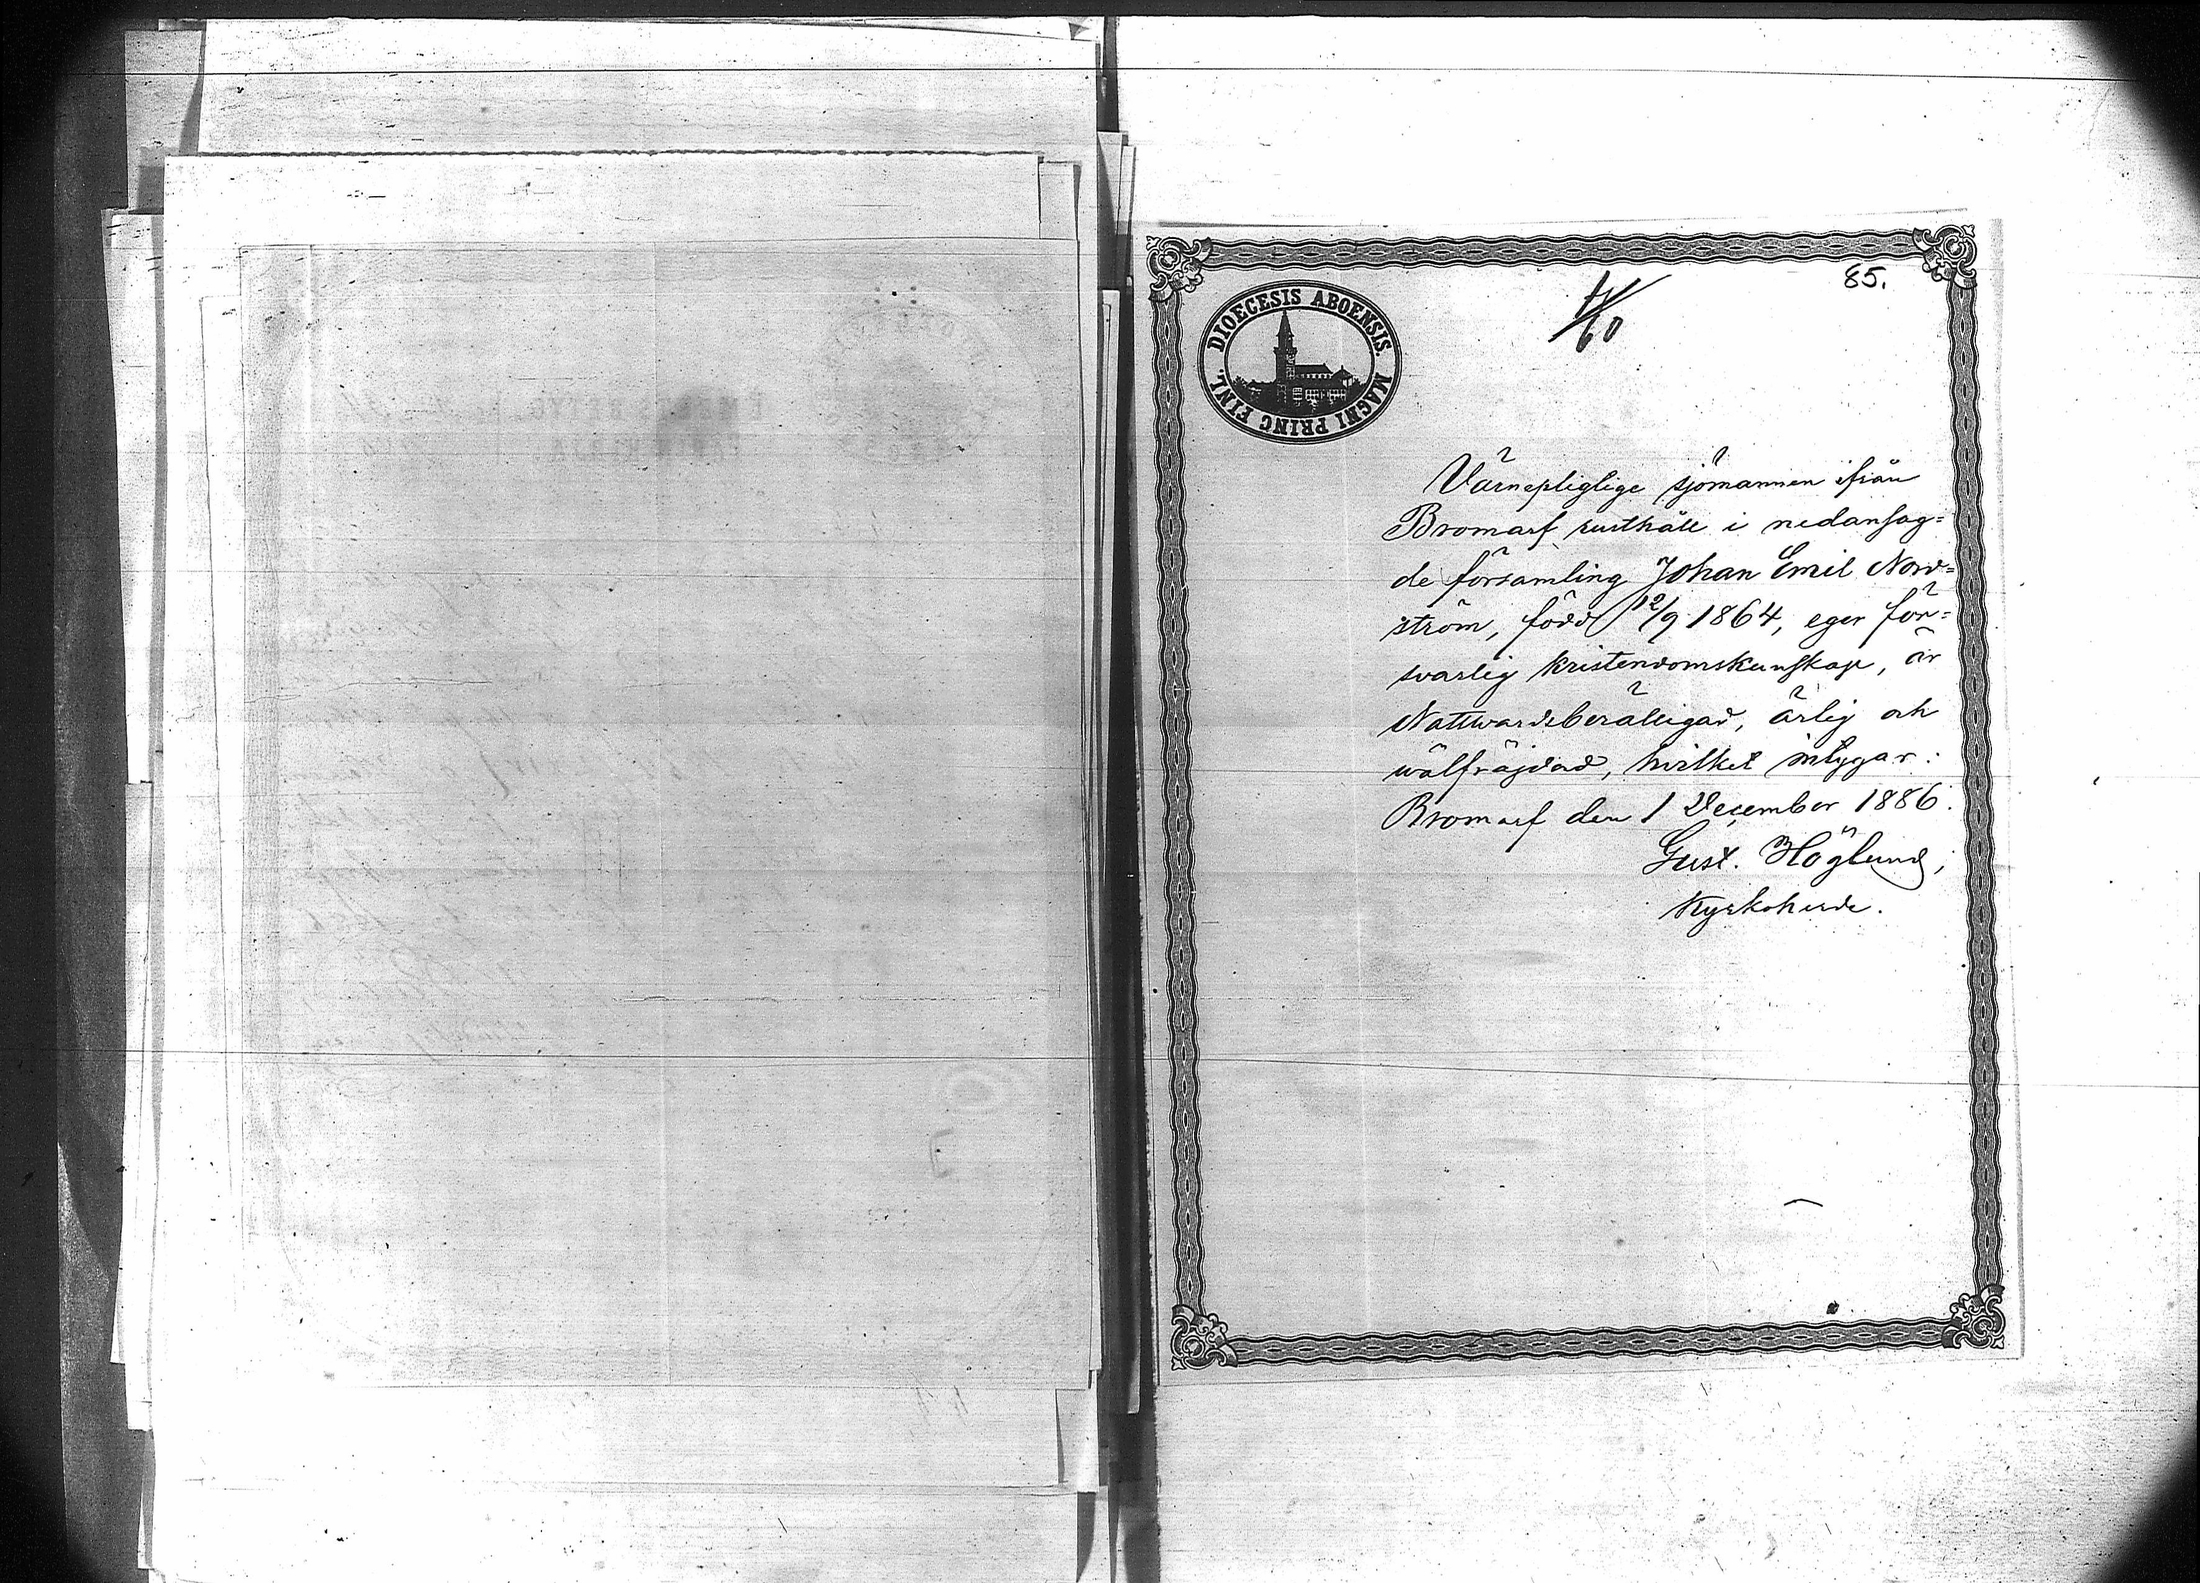 85.
DIOECESIS ABOENSIS. MAGNI PRINC FINL.
Värnepliglige sjömannen ifrån
Bromarf rusthåll i nedansag=
de församling Johan Emil Nord=
ström, född 12/9 1864, eger för=
svarlig kristendomskunskap, är
Nattwardsberättigad, ärlig och
wälfräjdad, hvilket intygar:
Bromarf den 1 December 1886.
Gust. Höglund,
Kyrkoherde.